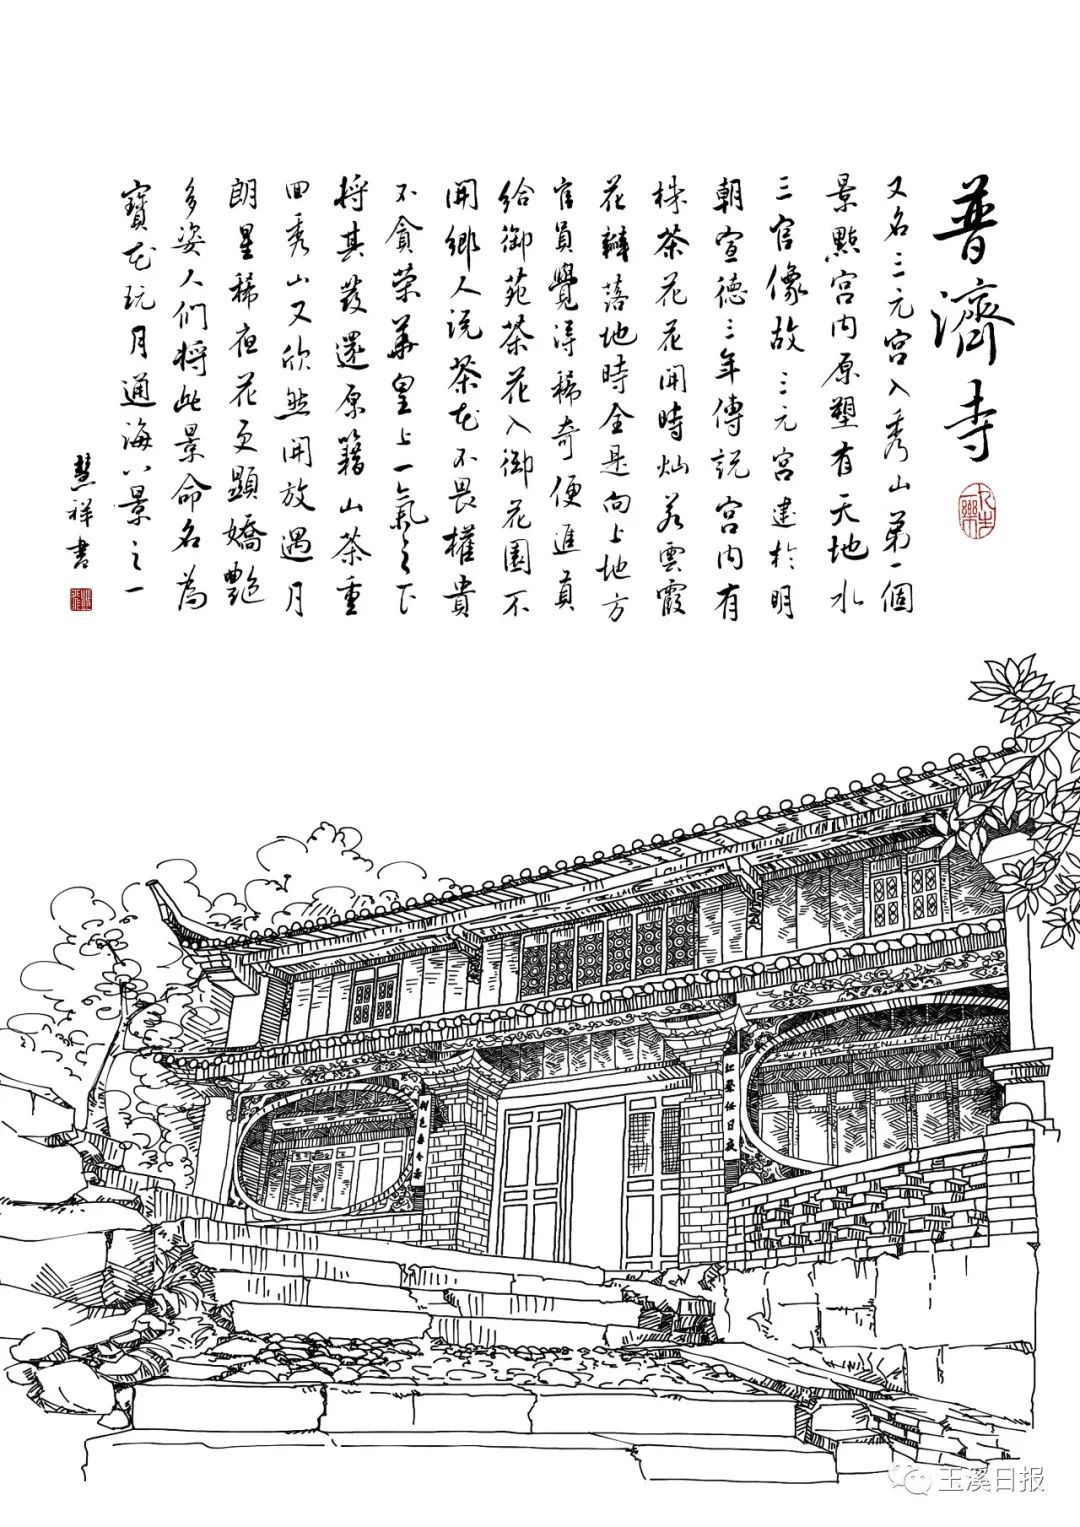 普濟寺
又名三元宮入秀山第一個
景點宮内原塑有天地水
三官像故三元宮建於明
朝宣德三年傳説宮内有
株茶花花開時灿若雲霞
花瓣落地時全是向上地方
官員覺得稀奇便進貢
給御苑茶花入御花園不
開鄉人说茶花不畏權貴
不貪榮華皇上一氣之下
將其發還原籍山茶重
回秀山又欣然開放遇月
朗星稀夜花更顯嬌艷
多姿人们將此景命名為
寶花玩月通海八景之一
慧祥書
玉溪日报